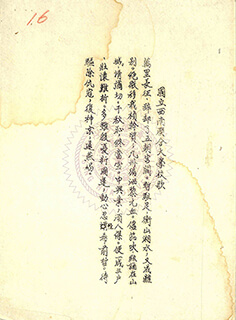 16
國立西南聯合大學校歌
萬里長征,辭却了五朝宮闕,暫駐足衡山湘水,又成離
別,絕徼移栽楨幹質,九州遍灑黎元血,儘笳吹弦誦在山
城,情彌切,千秋恥,終當雪,中興業,須人傑,便一成三戶
,壯懷難折,多難殷憂新國運,動心忍性希前哲,待
驅除仇寇,復神京,還燕碣。